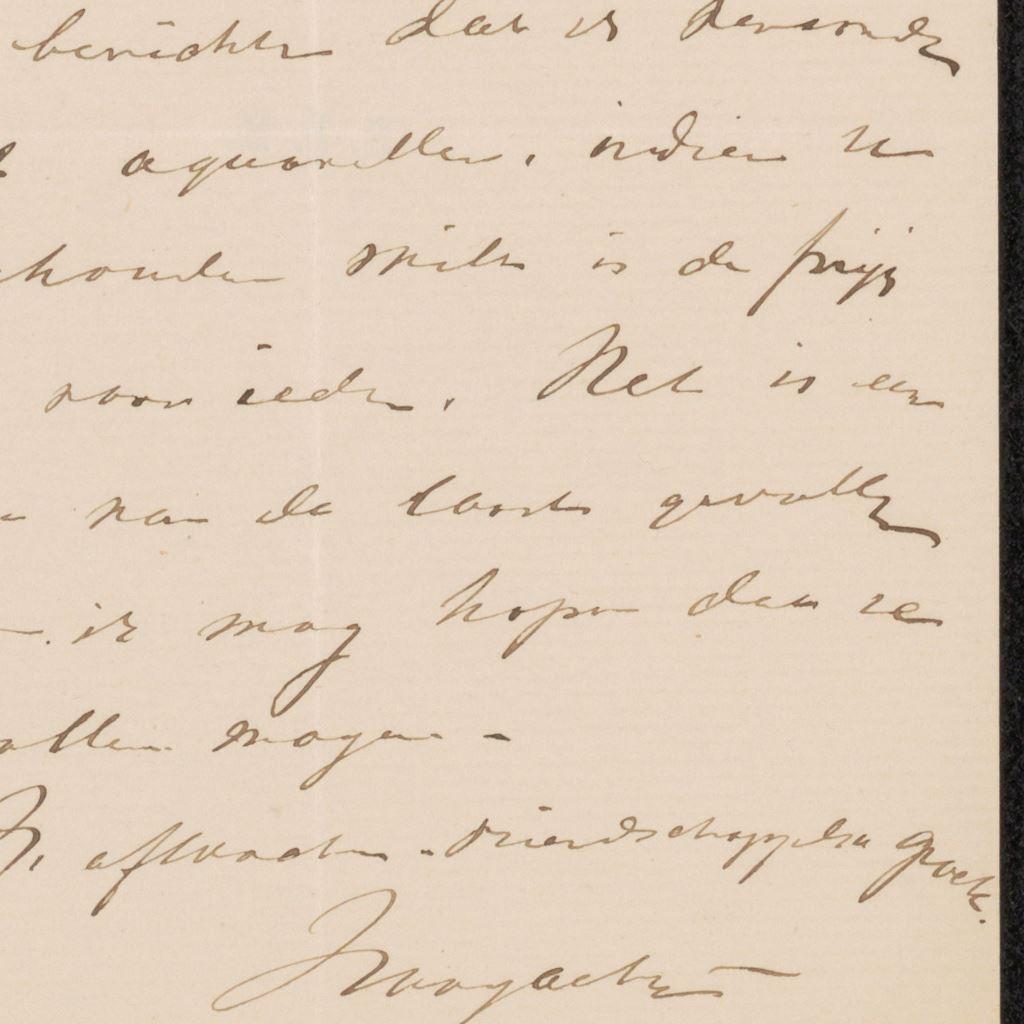 berichten dat ik verzonden
aquarellen, indien u
houden wilt is de prijs
voor ieder. Het is een
van de laatste gevallen
ik mag hopen dat ze
allen mogen -
In afwachten - vriendschappelijke groete.
Hoogachtend